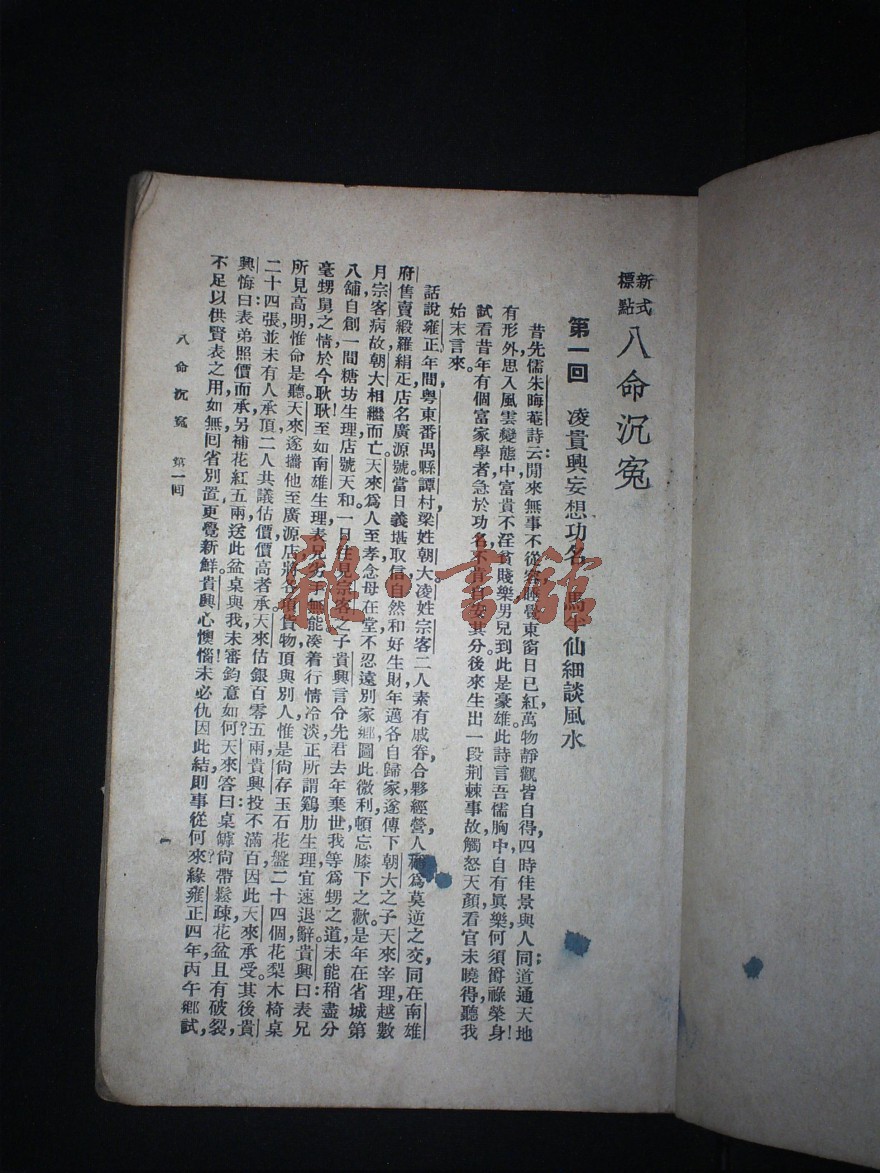 新式標點 八命沉寃
第一回 凌貴興妄想功名 馬半仙細談風水
昔先儒朱晦菴詩云：閒來無事不從容，睡覺東窗日已紅，萬物靜觀皆自得，四時佳景與人同；道通天地
有形外，思入風雲變態中，富貴不淫貧賤樂，男兒到此是豪雄。此詩言吾儒胸中自有眞樂，何須爵祿榮身！
試看昔年有個富家學者，急於功名，不肯自安其分，後來生出一段荆棘事故，觸怒天顏，看官未曉，得聽我
始末言來。
話說雍正年間，粤東番禺縣譚村，梁姓朝大，凌姓宗客，二人素有戚眷，合夥經營，人稱爲莫逆之交，同在南雄
府售賣緞羅絹疋，店名廣源號，當日義堪取信，自然和好生財，年邁各自歸家，遂傳下朝大之子天來宰理，越數
月，宗客病故，朝大相繼而亡，天來爲人至孝，念母在堂，不忍遠別家鄉，圖此微利，頓忘膝下之歡。是年在省城第
八舖，自創一間糖坊生理，店號天和。一日往見宗客之子貴興，言令先君去年棄世，我等爲甥之道，未能稍盡分
毫，甥舅之情，於今耿耿！至如南雄生理，表兄劣手無能，湊着行情冷淡，正所謂鷄肋生理，宜速退辭。貴興曰：表兄
所見高明，惟命是聽，天來遂攜他至廣源店，將各項貨物頂與別人，惟是尙存玉石花盤二十四個，花梨木椅桌
二十四張，並未有人承頂，二人共議估價，價高者承，天來估銀百零五兩，貴興投不滿百，因此天來承受。其後貴
興悔曰：表弟照價而承，另補花紅五兩，送此盆桌與我，未審鈞意如何？天來答曰：桌罅尙帶鬆疎，花盆且有破裂，
不足以供賢表之用，如無囘省別置，更覺新鮮！貴興心懊惱，未必仇因此結？則事從何來，緣雍正四年丙午鄉試，
八命沉寃 第一囘
雜·書館